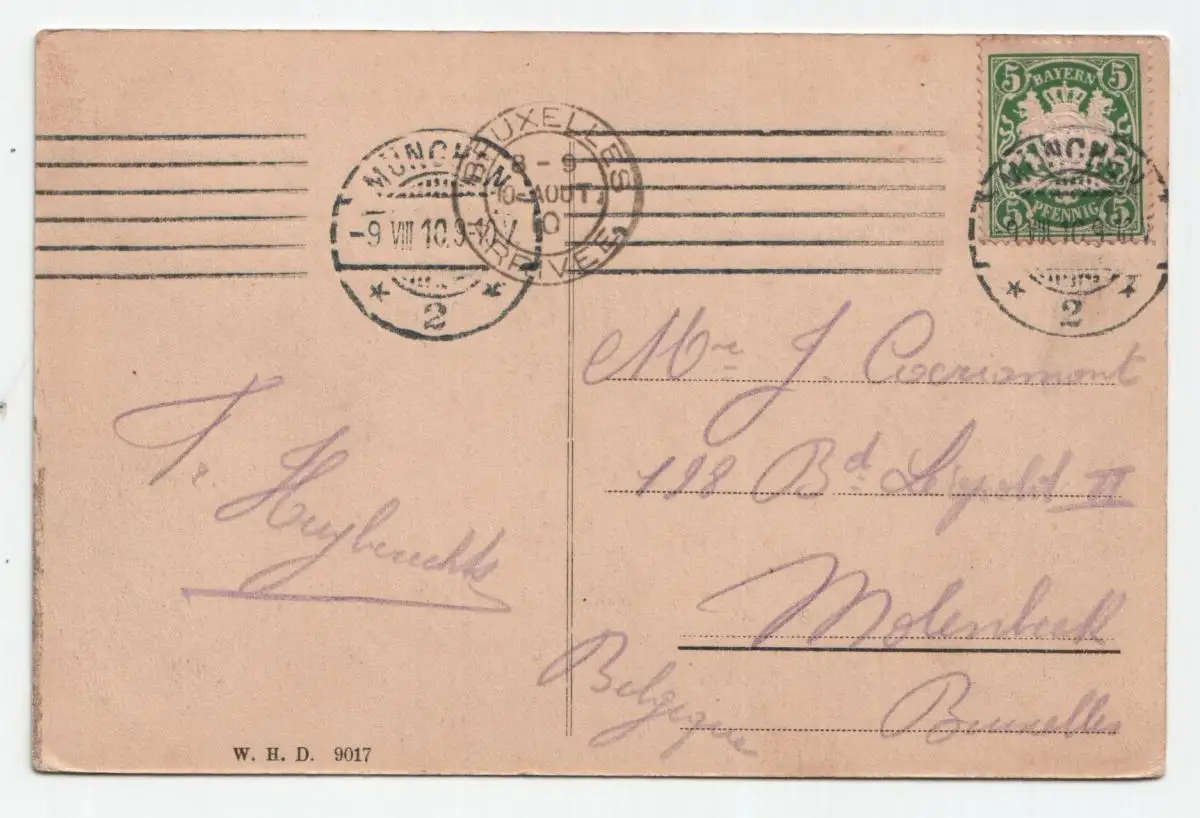 5 BAYERN 5
5 PFENNIG 5
MÜNCHEN
-9 VIII 10.9-10.V.
2
BRUXELLES
8-9
10 AOUT
10
ARRIVEE
MÜNCHEN
-9 VIII 10.9-10.V
2
Mr J.
198 Bd Léopold II
Molenbeek
Bruxelles
Belgique
Huybrechts
W. H. D. 9017